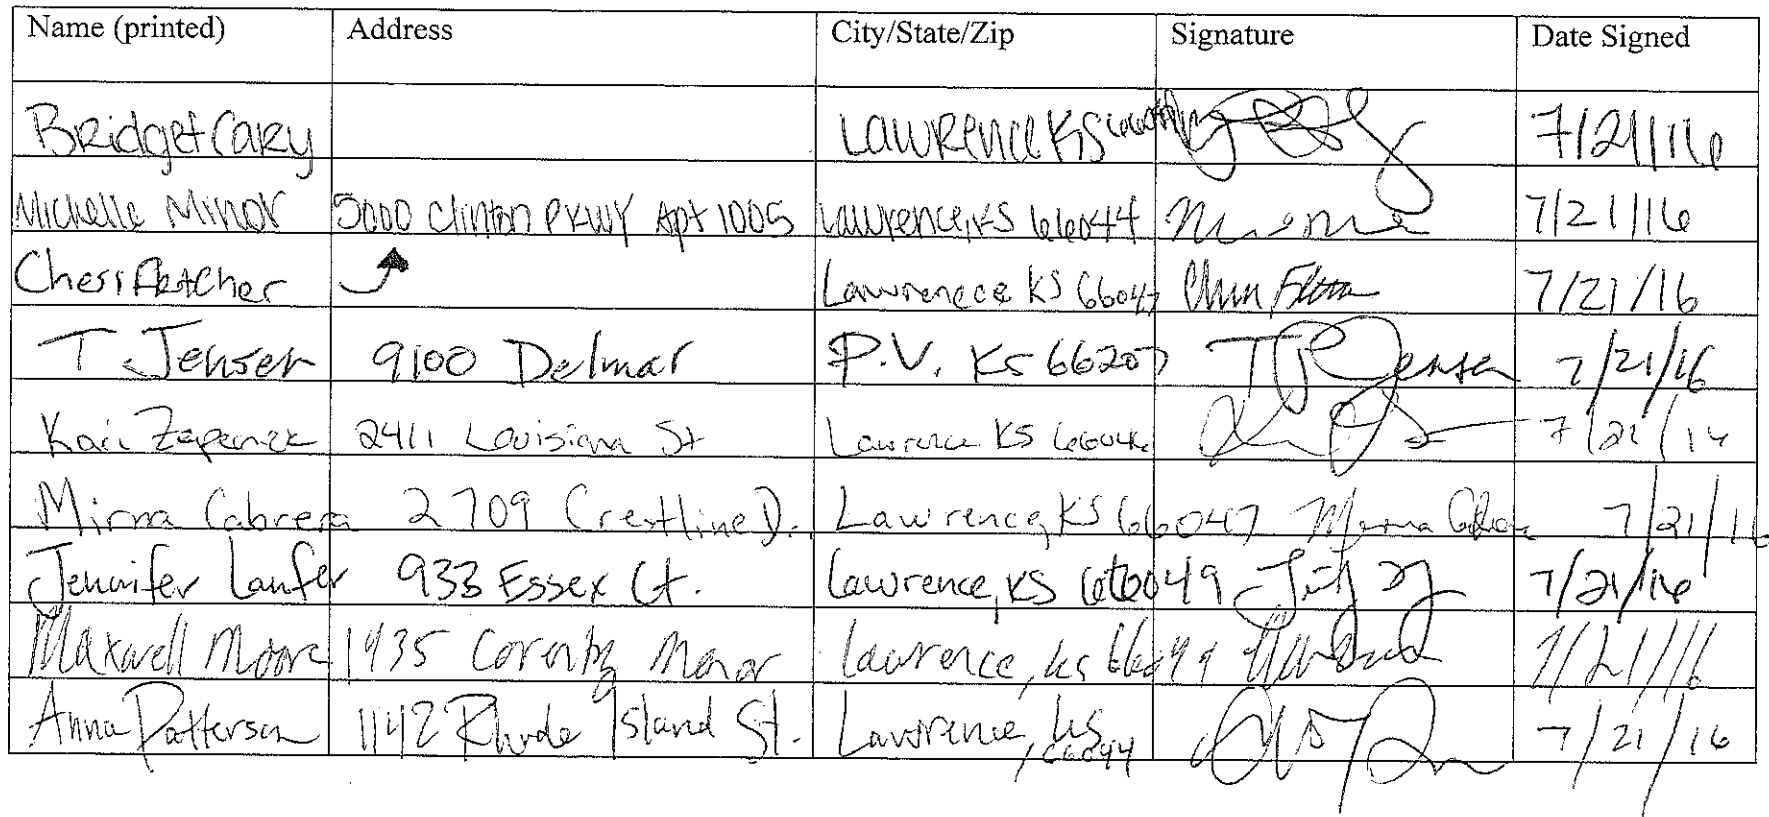 Name (printed) Address City/State/Zip Signature Date Signed
Bridget Cary Lawrence KS 7/21/16
Michelle Minor 5000 Clinton PKWY Apt 1005 Lawrence, KS 66044 7/21/16
Chess Fletcher Lawrenece KS 66047 7/21/16
T Jensen 9100 Delmar P.V. KS 66207 T Jensen 7/21/16
Kaii 2411 Louisiana St Lawrence KS 66046 7/21/16
Mirna Cabrera 2709 Crestline D. Lawrence, KS 66047 Mirna 7/21/16
Jennifer Laufer 933 Essex Ct. Lawrence, KS 66049 7/21/16
Maxwell Moore 1435 Manor Lawrence, ks 66049 7/21/16
Anna Patterson 1142 Rhode Island St. Lawrence, ks, 66044 7/21/16